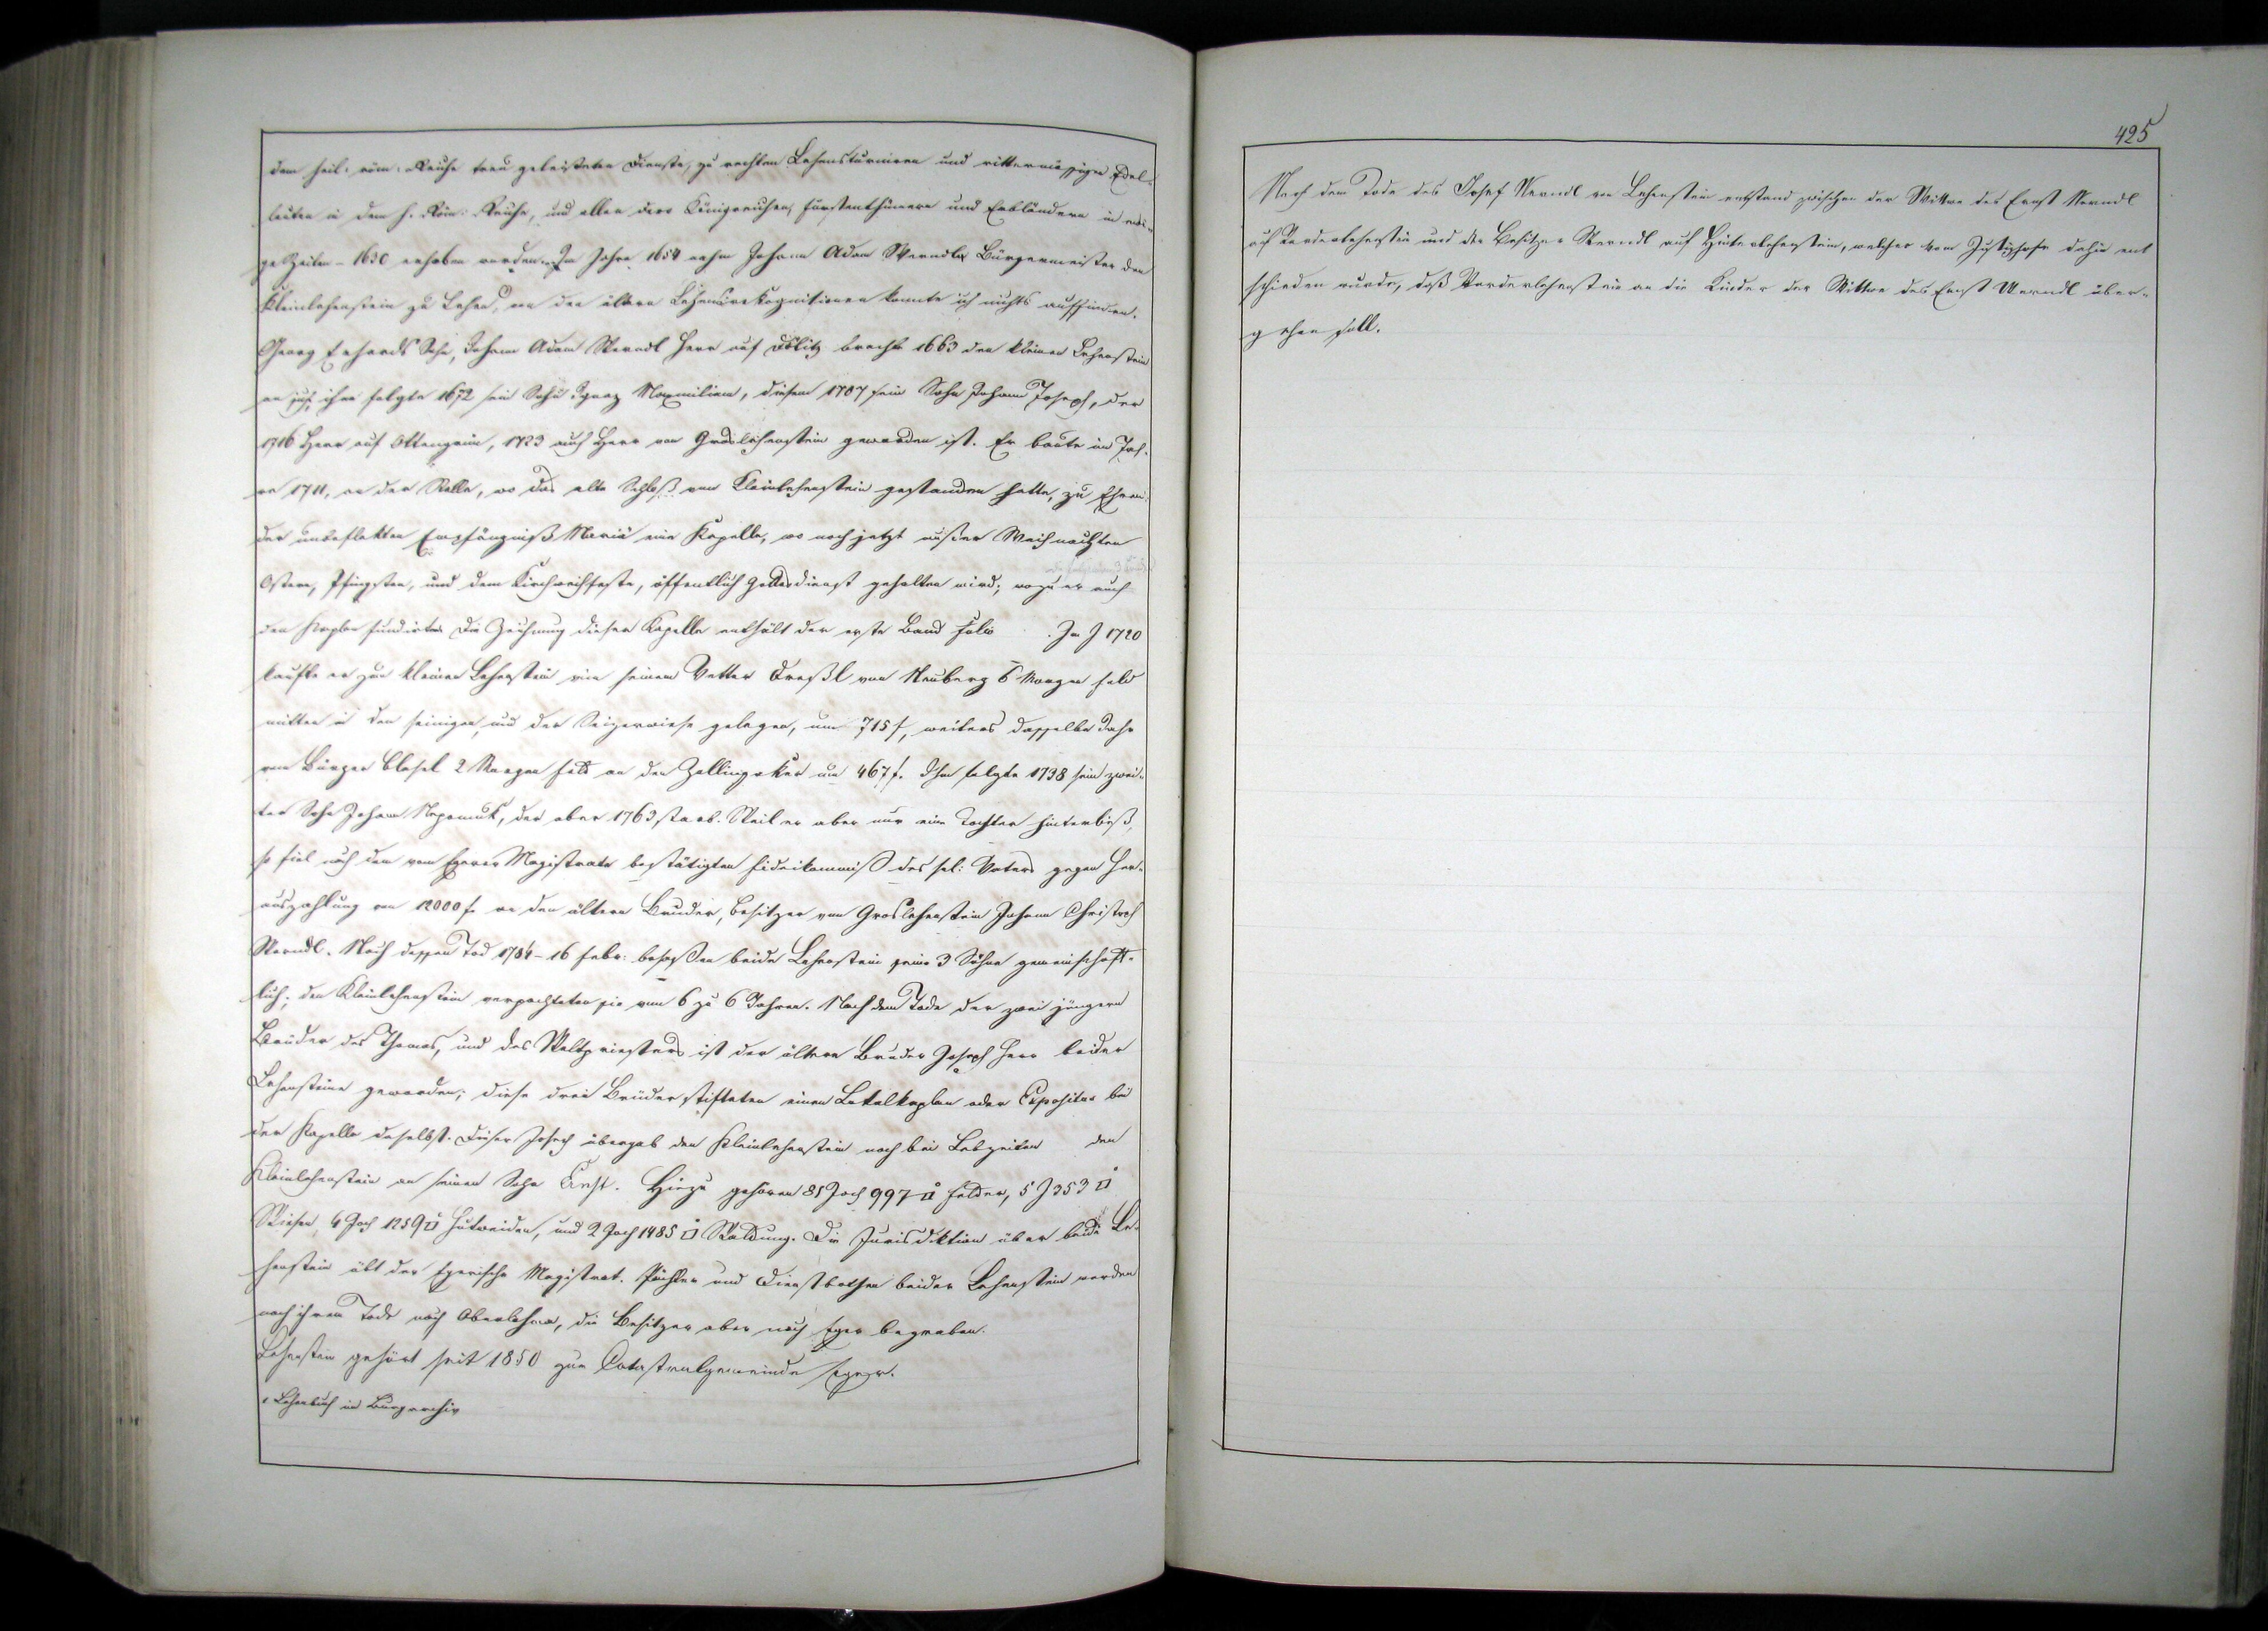 dem heil: röm: Reiche treu geleisteten Dienste, zu rechten Lehensturniren und rittermässigen Edel-
leuten in dem h. Röm: Reiche, und allen dero Königreichen, Fürstenthümern und Erbländern in ewi-
ge Zeiten - 1630 erhoben worden. Im Jahre 1654 nahm Johann Adam Werndle Bürgermeister den
Kleinlehenstein zu Lehen, von den ältern Lehensrekognitionen konnte ich nichts auffinden.
Georg Erhards Sohn, Johann Adam Werndl Herr auf Dölitz brachte 1663 den kleinen Lehenstein
an sich, ihm folgte 1672 sein Sohn Ignaz Maximilian, diesem 1707 sein Sohn Johann Joseph, der
1716 Herr auf Ottengrün, 1723 auch Herr von Groslehenstein geworden ist. Er baute im Jah-
re 1711, an der Stelle, wo das alte Schloß von Kleinlehenstein gestanden hatte, zu Ehren
der unbeflekten Empfängniß Mariä eine Kapelle, wo noch jetzt außer Weihnachten
Ostern, Pfingsten, und dem Kirchweihfeste, öffentlich Gottesdienst gehalten wird; wozu er auch
den Kaplan fundirte. Die Zeichnung dieser Kapelle enthält der erste Band Folio . Im J 1720
kaufte er zum kleinen Lehenstein von seinem Vetter Troßl von Neuberg 6 Morgen Feld
mitten in den seinigen, und der Geigerwiese gelegen, um 715 f, weiters dasselbe Jahr
vom Bürger Clasel 2 Morgen Feld an den Zellingaker um 467 f. Ihm folgte 1738 sein zwei-
ter Sohn Johann Nepomuk, der aber 1763 starb. Weil er aber nur eine Tochter hinterließ,
so fiel nach dem vom Egerer Magistrate bestätigten Fideikommiß des sel: Vaters gegen Her-
auszahlung von 12000 f. an den ältern Bruder, Besitzer von Groslehenstein Johann Christoph
Werndl. Nach dessen Tod 1784 - 16 Febr: besaßen beide Lehenstein seine 3 Söhne gemeinschaft-
lich; den Kleinlehenstein verpachteten sie von 6 zu 6 Jahren. Nach dem Tode der zwei jüngern
Brüder des Thomas, und des Weltpriesters ist der ältere Bruder Joseph Herr beider
Lehensteine geworden; diese drei Brüder stifteten einen Lokalkaplan oder Expositus bei
der Kapelle daselbst. Dieser Joseph übergab den Kleinlehenstein noch bei Lebzeiten den
Kleinlehenstein an seinen Sohn Ernst. Hiezu gehören 81 Joch 997 □ Felder, 5 J 353 □
Wiesen, 4 Joch 1259 □ Hutweiden, und 2 Joch 1485 □ Waldung. Die Jurisdiktion über beide Le-
henstein übt der Egerische Magistrat. Pächter und Dienstbothen beider Lehenstein werden
nach ihrem Tode nach Oberlohma, die Besitzer aber nach Eger begraben.
Lehenstein gehört seit 1850 zur Catastralgemeinde Eger.
Lehenbuch im Burgarchiv
425
Nach dem Tode des Josef Werndl von Lehenstein entstand zwischen der Wittwe des Ernst Werndl
auf Vorderlehenstein und der Besitzer Werndl auf Hinterlehenstein, welcher vom Justizhofe dahin ent
schieden wurde, daß Vorderlehenstein an die Kinder der Wittwe des Ernst Werndl über-
gehen soll.